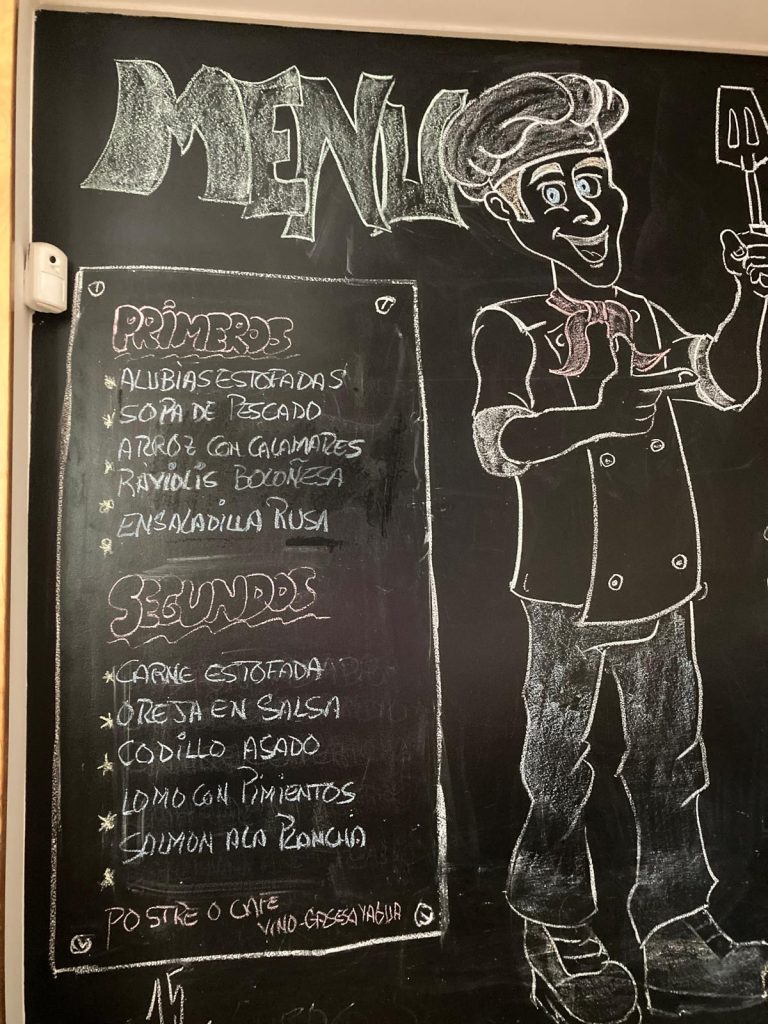 MENU
PRIMEROS
ALUBIAS ESTOFADAS
SOPA DE PESCADO
ARROZ CON CALAMARES
RAVIOLIS BOLOÑESA
ENSALADILLA RUSA
SEGUNDOS
CARNE ESTOFADA
OREJA EN SALSA
CODILLO ASADO
LOMO CON PIMIENTOS
SALMON A LA PLANCHA
POSTRE O CAFE
VINO-GASESA Y AGUA
15